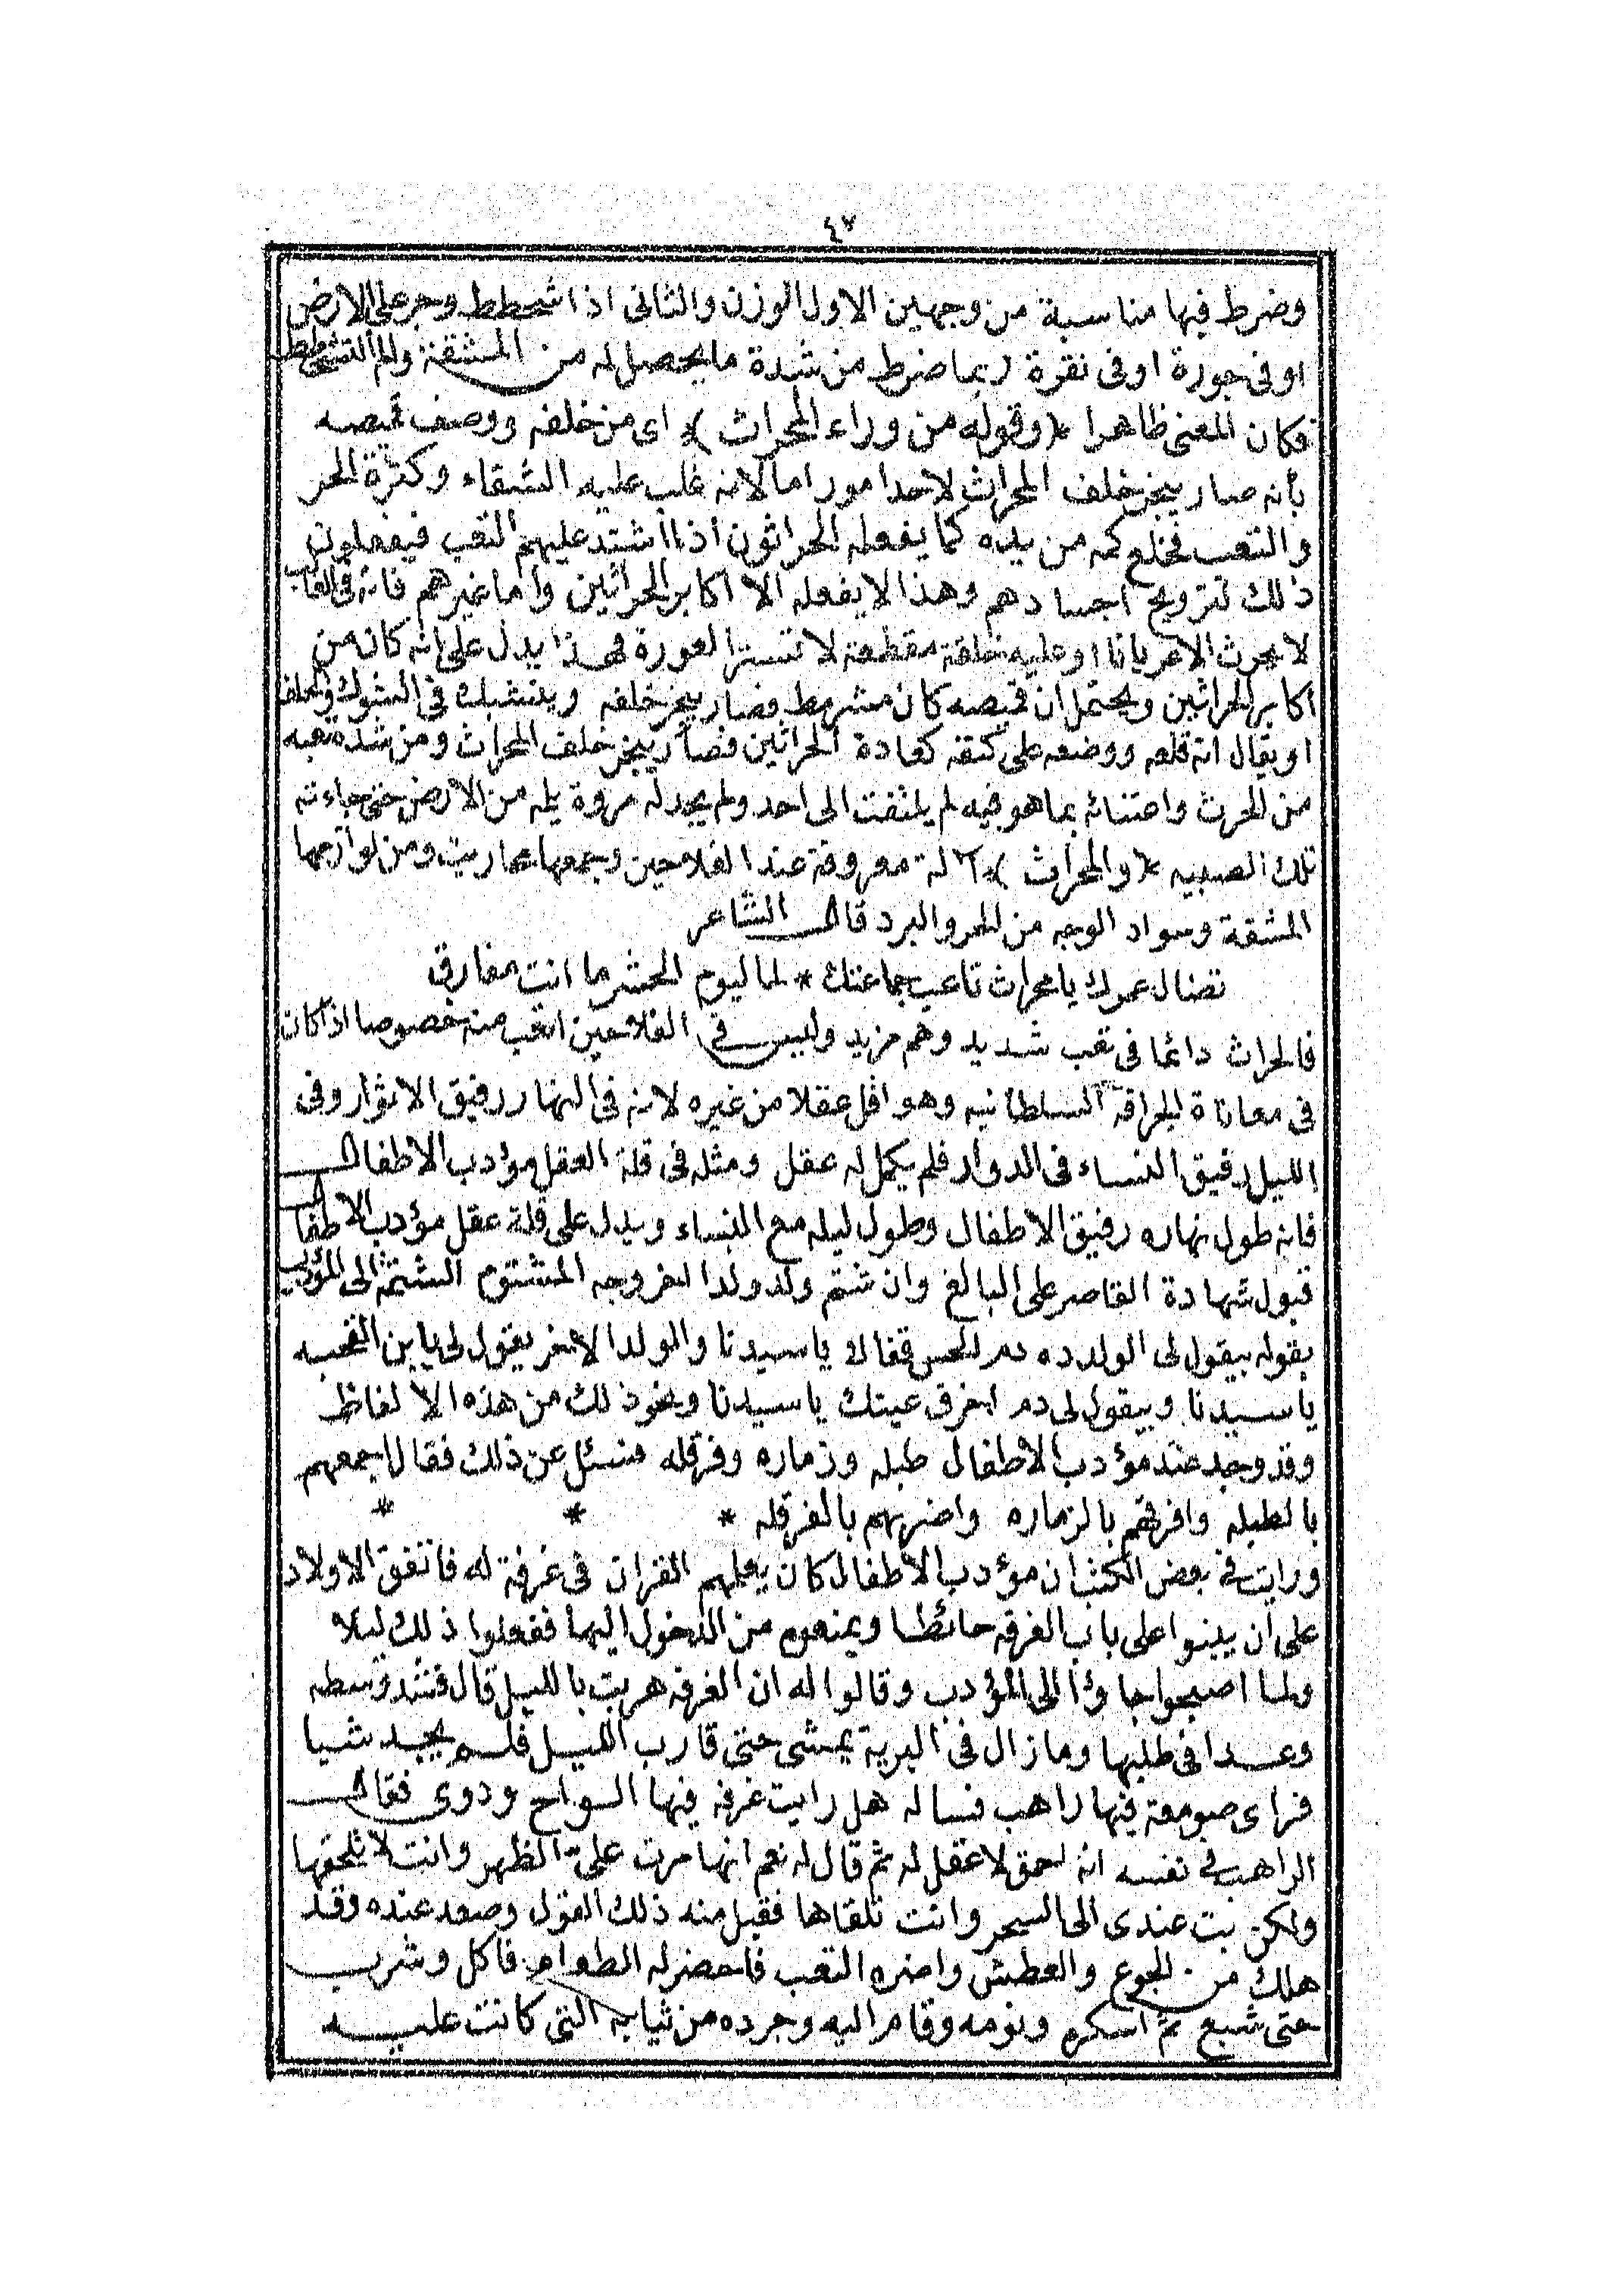 ٤٧
وضرط فيها مناسبة من وجهين الاول الوزن والثانى اذا شحطط وجر على الارض
او فى جورة او فى نقرة ربما ضرط من شدة ما يحصل له من المشقة والم التشحطط
فكان المعنى ظاهرا * (وقوله من وراء المحراث) * اى من خلفه ووصف قميصه
بأنه صار ينجر خلف المحراث لاحد امور اما لانه غلب عليه الشقاء وكثرة الحر
والتعب فخلع كمه من يده كما يفعله الحراثون اذا اشتد عليهم التعب فيفعلون
ذلك لترويح اجسادهم وهذا لا يفعله الا اكابر الحراثين واما غيرهم فانه فى الغالب
لا يحرث الا عريانا او عليه خلقة مقطعة لا تستر العورة فهذا يدل على انه كان من
اكابر الحراثين ويحتمل ان قميصه كان مشرمط فصار ينجر خلفه ويتشبك فى الشوك والحلفا
او يقال انه قلعه ووضعه على كتفه كعادة الحراثين فصار ينجر خلف المحراث ومن شدة تعبه
من الحرث واعتنائه بما هو فيه لم يلتفت الى احد ولم يجد له مروة يلمه من الارض حتى جاءته
تلك الصبيه * (والمحراث) * آلة معروفة عند الفلاحين وجمعها محاريث ومن لوازمها
المشقة وسواد الوجه من الحر والبرد قال الشاعر
تضال عمرك يا محراث تاعب جماعتك * لما ليوم الحشر ما انت مفارق
فالحراث دائما فى تعب شديد وهم مزيد وليس فى الفلاحين اتعب منه خصوصا اذا كان
فى معاناة للجرافه السلطانيه وهو اقل عقلا من غيره لانه فى النهار رفيق الاثوار وفى
الليل رفيق النساء فى الدوار فلم يكمل له عقل ومثله فى قلة العقل مؤدب الاطفال
فانه طول نهاره رفيق الاطفال وطول ليله مع النساء ويدل على قلة عقل مؤدب الاطفال
قبول شهادة القاصر على البالغ وان شتم ولد ولدا اخر وجه المشتوم الشتمة الى المؤدب
بقوله بيقول لى الولد ده دم الحس قفاك يا سيدنا والولد الاخر يقول لى يا بن القحبه
يا سيدنا وبيقول لى دم اخرق عينك يا سيدنا ونحو ذلك من هذه الالفاظ
وقد وجد عند مؤدب الاطفال طبله وزماره وفرقله فسئل عن ذلك فقال اجمعهم
بالطبله وافرقهم بالزماره واضربهم بالفرقله * * *
ورايت فى بعض الكتب ان مؤدب الاطفال كان يعلمهم القران فى غرفة له فاتفق الاولاد
على ان يبنوا على باب الغرفه حائطا ويمنعوه من الدخول اليها ففعلوا ذلك ليلا
ولما اصبحوا جاؤا الى المؤدب وقالوا له ان الغرفه هربت بالليل قال فشد وسطه
وعدا فى طلبها وما زال فى البرية يمشى حتى قارب الليل فلم يجد شيا
فراى صومعة فيها راهب فساله هل رايت غرفه فيها الواح ودوى فقال
الراهب فى نفسه انه احمق لا عقل له ثم قال له نعم انها مرت على الظهر وانت لا تلحقها
ولكن بت عندى الى السحر وانت تلقاها فقبل منه ذلك القول وصعد عنده وقد
هلك من الجوع والعطش واضره التعب فاحضر له الطعام فاكل وشرب
حتى شبع ثم اسكره ونومه وقام اليه وجرده من ثيابه التى كانت عليه